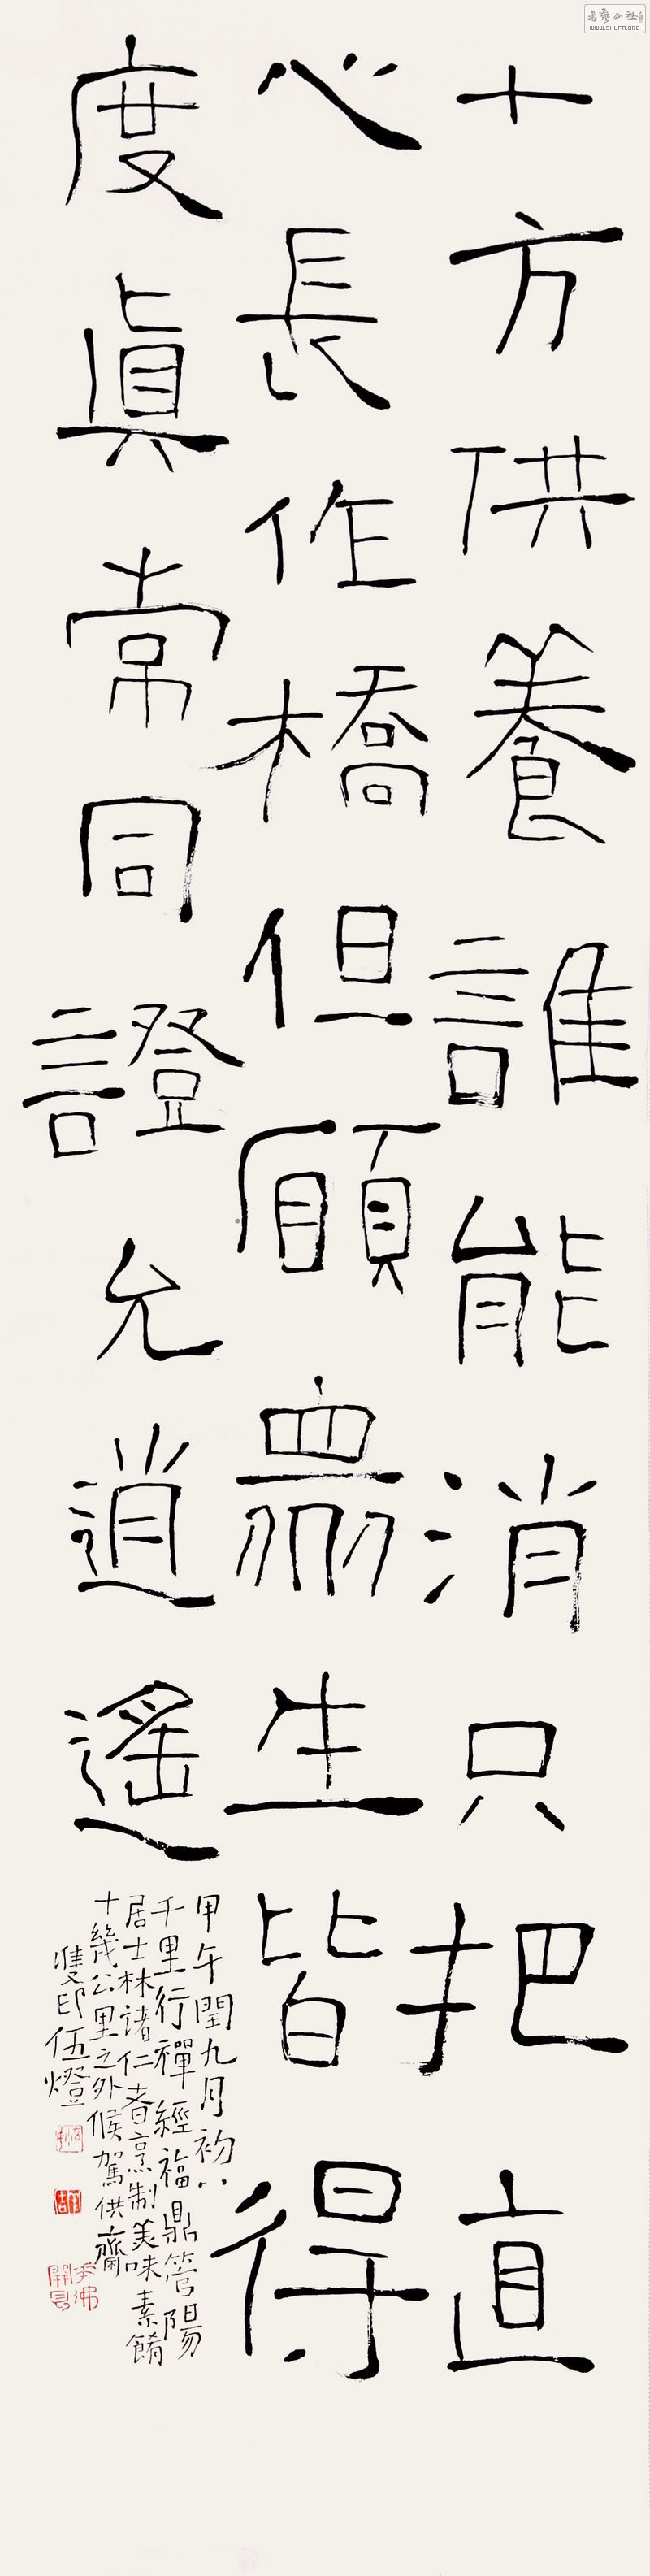 十方供養誰能消只把直
心長作橋但願眾生皆得
度眞常同證允逍遙
甲午閏九月初八
千里行禪經福鼎管陽
居士林諸仁者烹制美味素餚
十幾公里之外候駕供齋
雙印伍燈
WWW.SHUFA.ORG